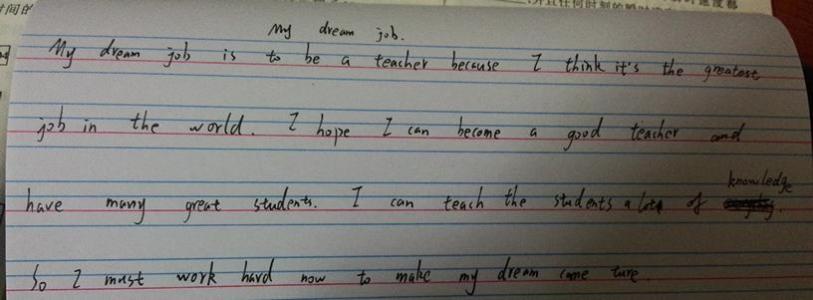 时间的
并且任何时刻的瞬时速度都
My dream job.
My dream job is to be a teacher because I think it's the greatest
job in the world. I hope I can become a good teacher and
have many great students. I can teach the students a lots of knowledge.
So I must work hard now to make my dream come ture.